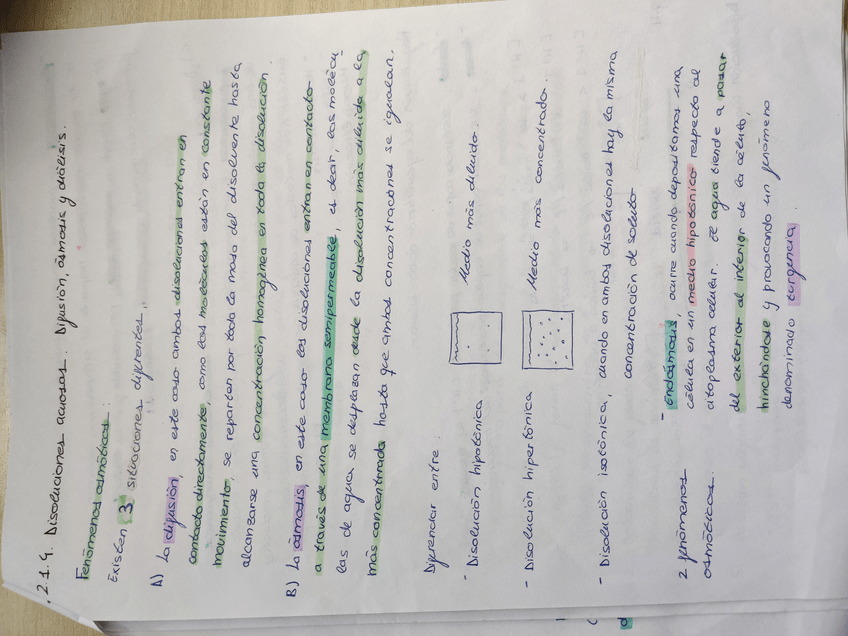 2.1.4. Disoluciones acuosas. Difusión, ósmosis y diálisis.
Fenómenos osmóticos:
Existen 3 situaciones diferentes,
A) La difusión, en este caso ambas disoluciones entran en
contacto directamente, como las moléculas están en constante
movimiento, se reparten por toda la masa del disolvente hasta
alcanzarse una concentración homogénea en toda la disolución.
B) La ósmosis, en este caso las disoluciones entran en contacto
a través de una membrana semipermeable, es decir, las molécu-
las de agua se desplazan desde la disolución más diluida a la
más concentrada hasta que ambas concentraciones se igualan.
Diferenciar entre:
- Disolución hipotónica Medio más diluido.
- Disolución hipertónica Medio más concentrado.
- Disolución isotónica, cuando en ambas disoluciones hay la misma
concentración de soluto
2 fenómenos
osmóticos.
- endósmosis, ocurre cuando depositamos una
célula en un medio hipotónico respecto al
citoplasma celular. El agua tiende a pasar
del exterior al interior de la célula,
hinchándose y provocando un fenómeno
denominado turgencia.